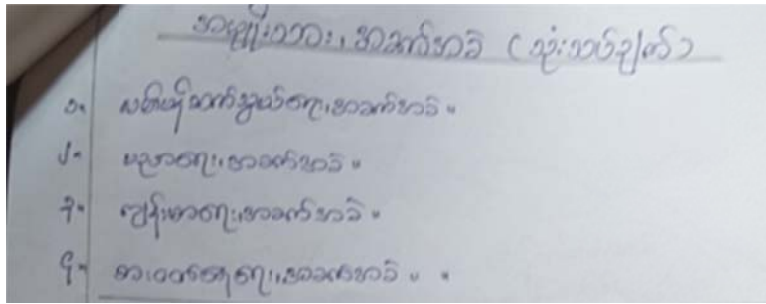 အမျိုးသား၊ အခက်အခဲ (သုံးသပ်ချက်)
၁။ လမ်းပို့ဆက်သွယ်ရေး၊ အခက်အခဲ။
၂။ ပညာရေး၊ အခက်အခဲ။
၃။ ကျန်းမာရေး၊ အခက်အခဲ။
၄။ စားဝတ်နေရေး၊ အခက်အခဲ။ ။